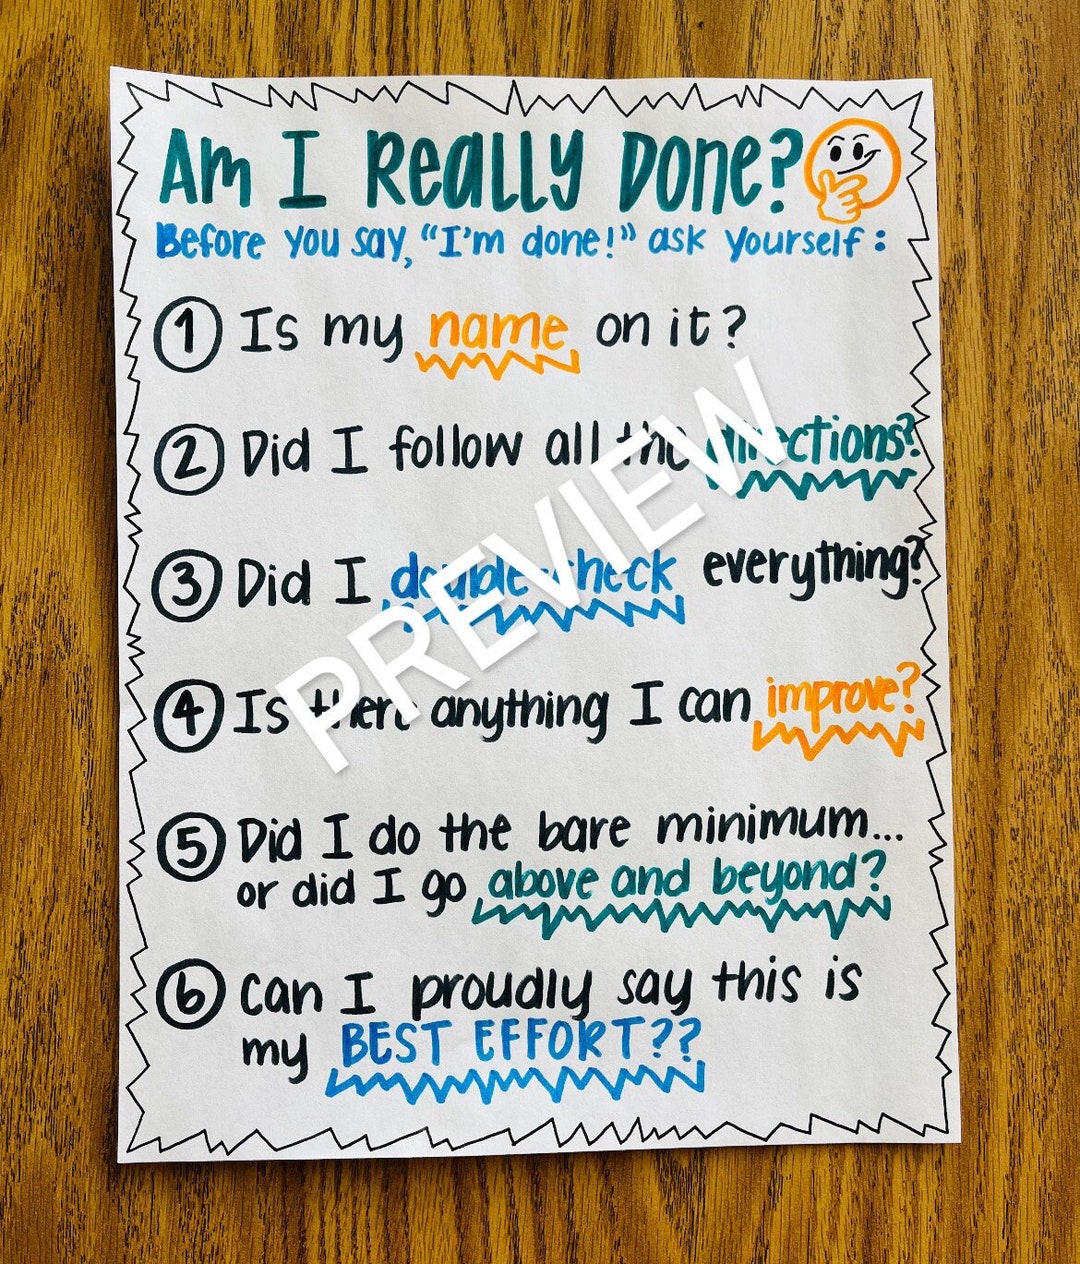 Am I Really Done?
Before you say, "I'm done!" ask yourself:
1 Is my name on it?
2 Did I follow all the directions?
3 Did I double-check everything?
4 Is there anything I can improve?
5 Did I do the bare minimum...
or did I go above and beyond?
6 Can I proudly say this is
my BEST EFFORT??
PREVIEW